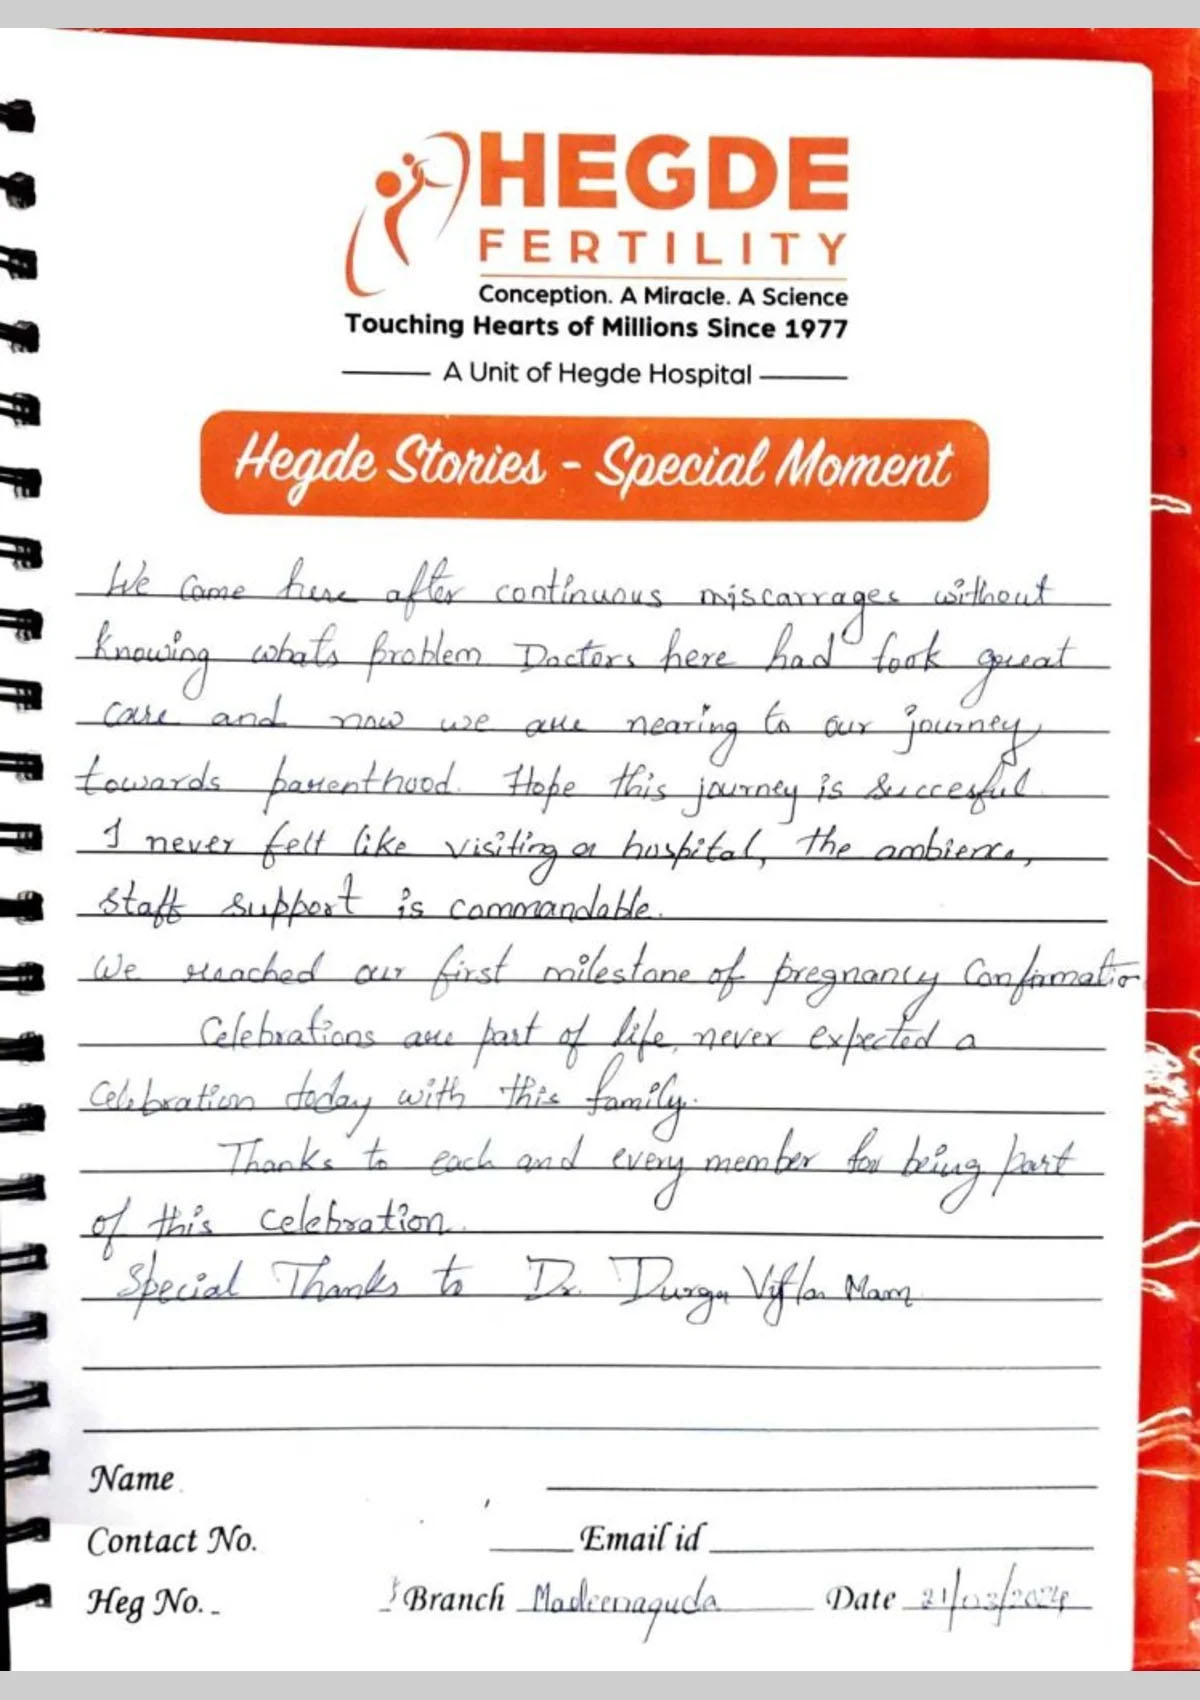 HEGDE
FERTILITY
Conception. A Miracle. A Science
Touching Hearts of Millions Since 1977
A Unit of Hegde Hospital
Hegde Stories - Special Moment
We came here after continuous miscarrages without
knowing whats problem Doctors here had took great
care and now we are nearing to our journey
towards parenthood. Hope this journey is succesful.
I never felt like visiting a hospital, the ambience,
staff support is commandable.
We reached our first milestone of pregnancy confirmation
Celebrations are part of life, never expected a
celebration today with this family.
Thanks to each and every member for being part
of this celebration.
Special Thanks to Dr. Durga Mam
Name
Contact No. Email id
Heg No. Branch Madeenaguda Date 21/03/2024